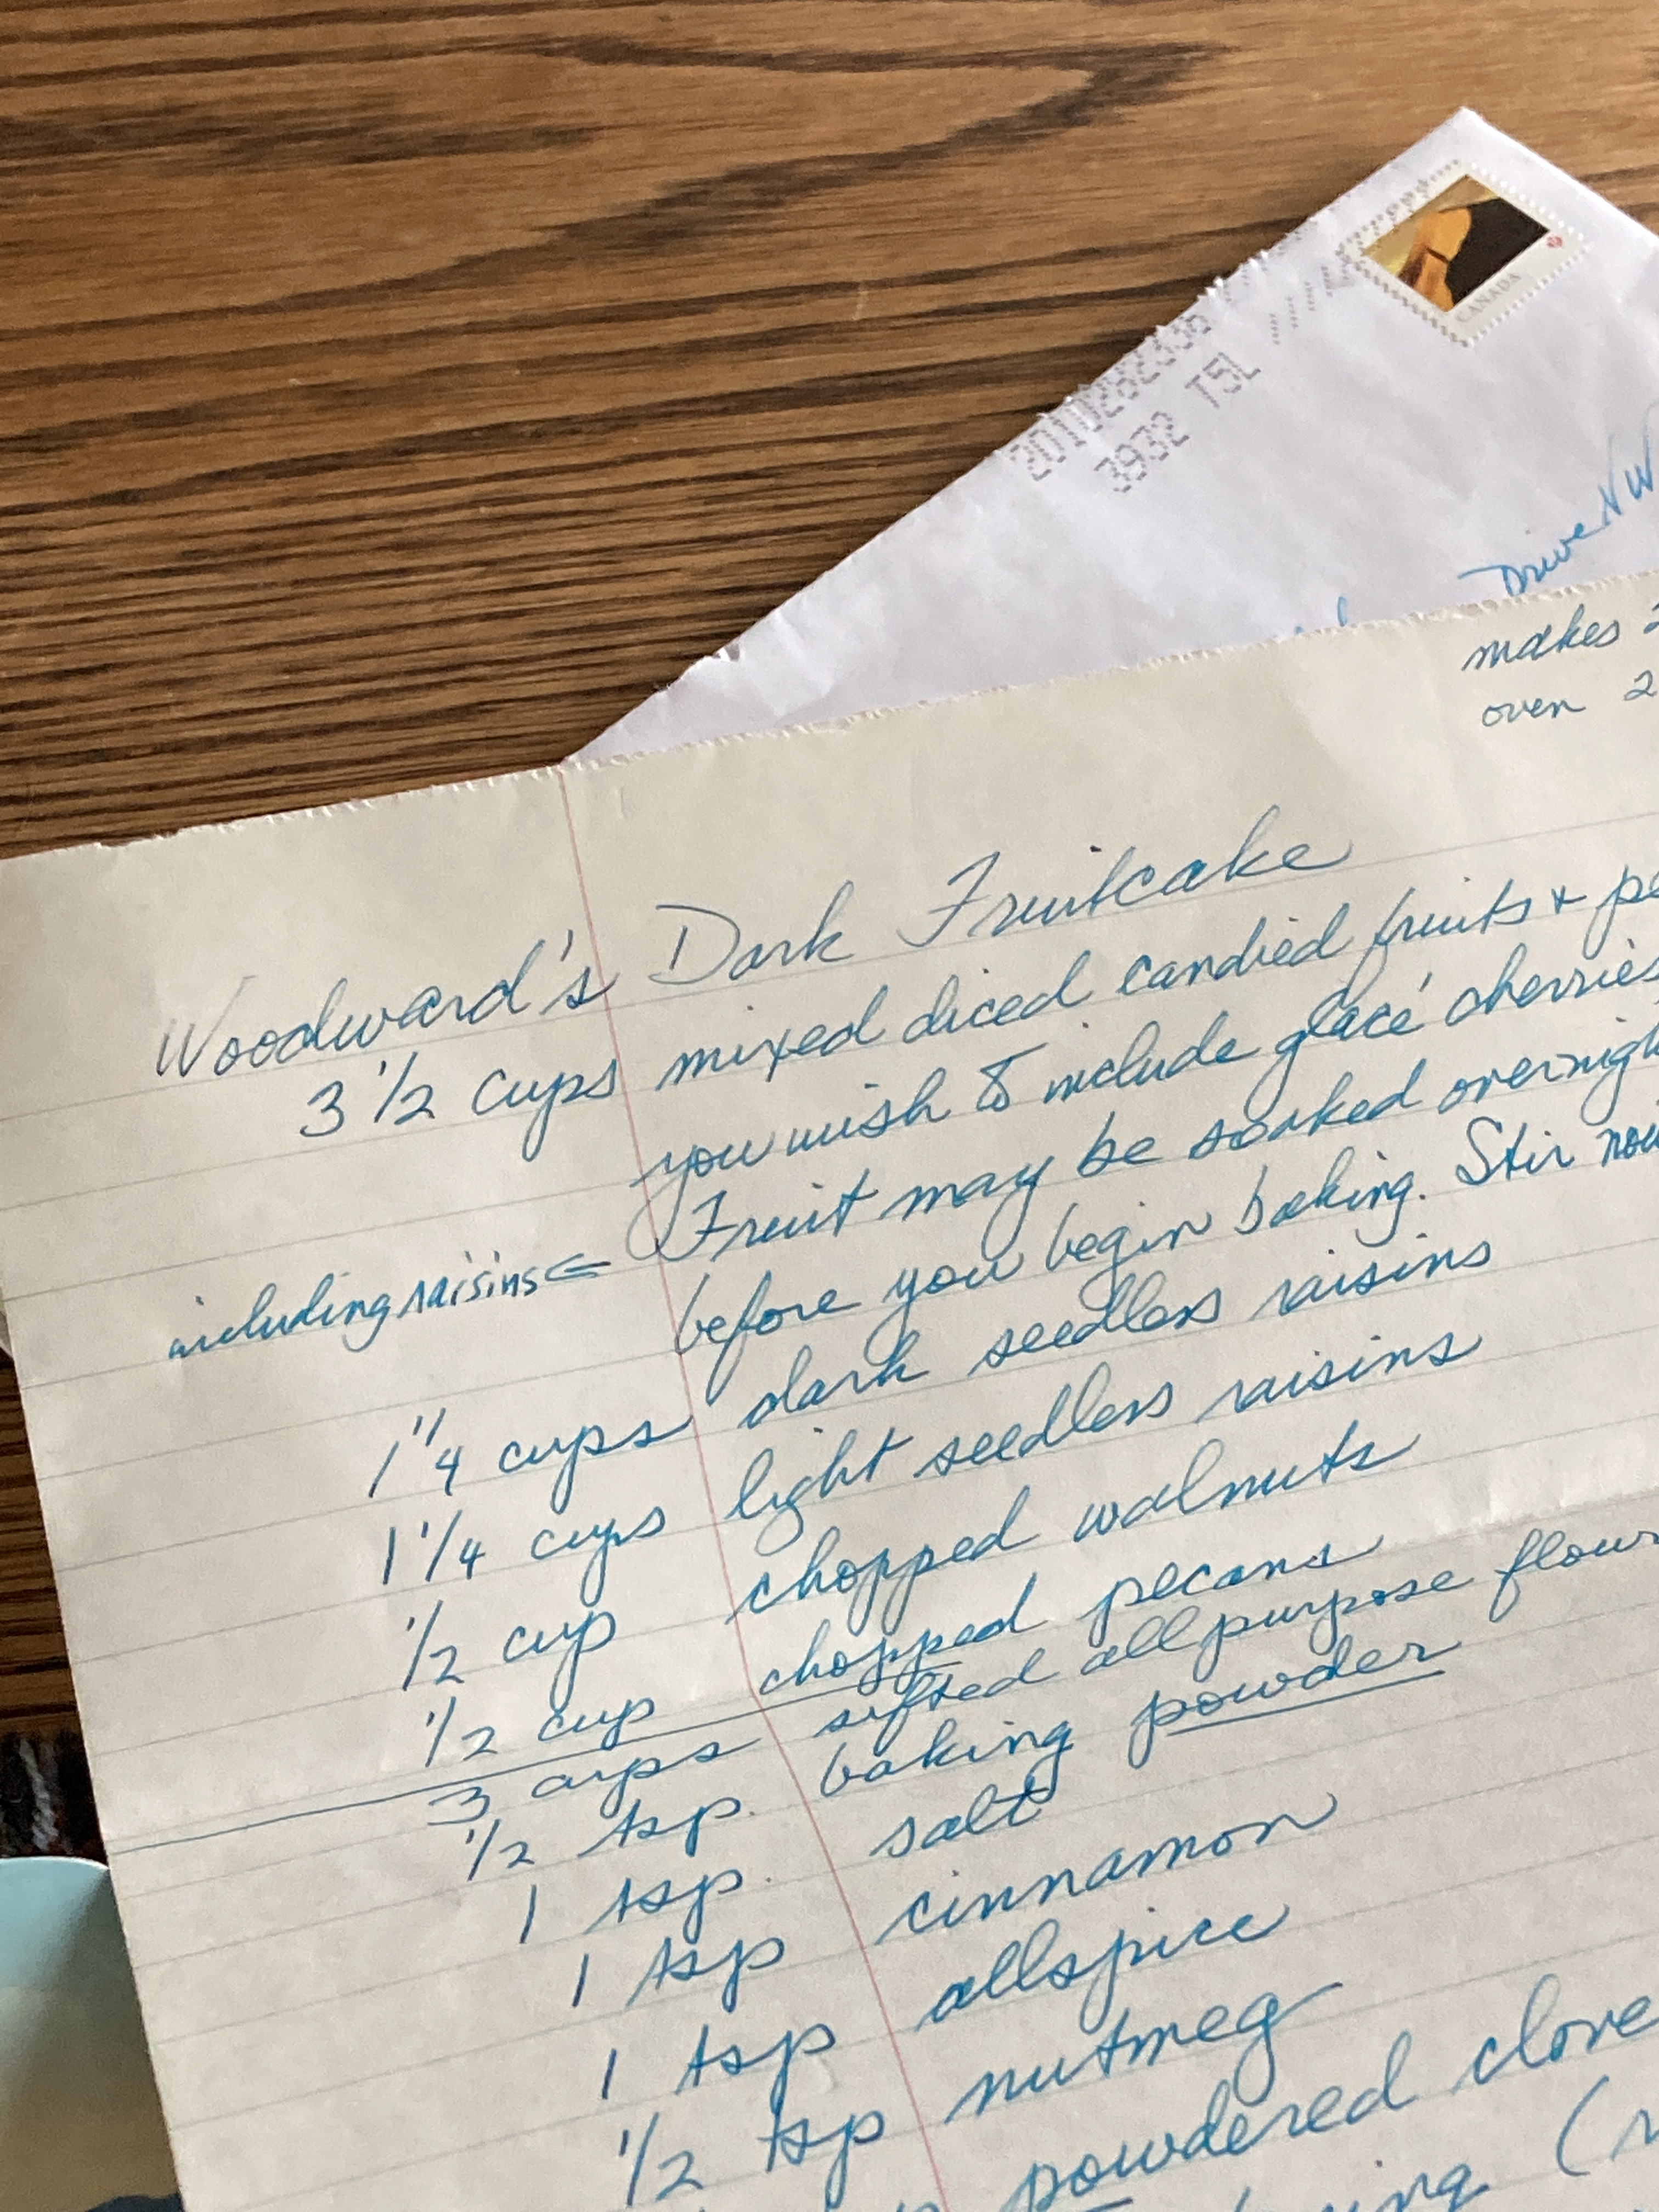 CANADA
2010282338
3932 T5L
Drive NW
makes 2
oven 2
Woodward's Dark Fruitcake
3 1/2 cups mixed diced candied fruits + pe
you wish to include glacé cherries
Fruit may be soaked overnigh
including raisins
before you begin baking. Stir now
1 1/4 cups dark seedless raisins
1 1/4 cups light seedless raisins
1/2 cup chopped walnuts
1/2 cup chopped pecans
3 cups sifted all purpose flour
1/2 tsp. baking powder
1 tsp. salt
1 tsp cinnamon
1 tsp allspice
1/2 tsp nutmeg
powdered clove